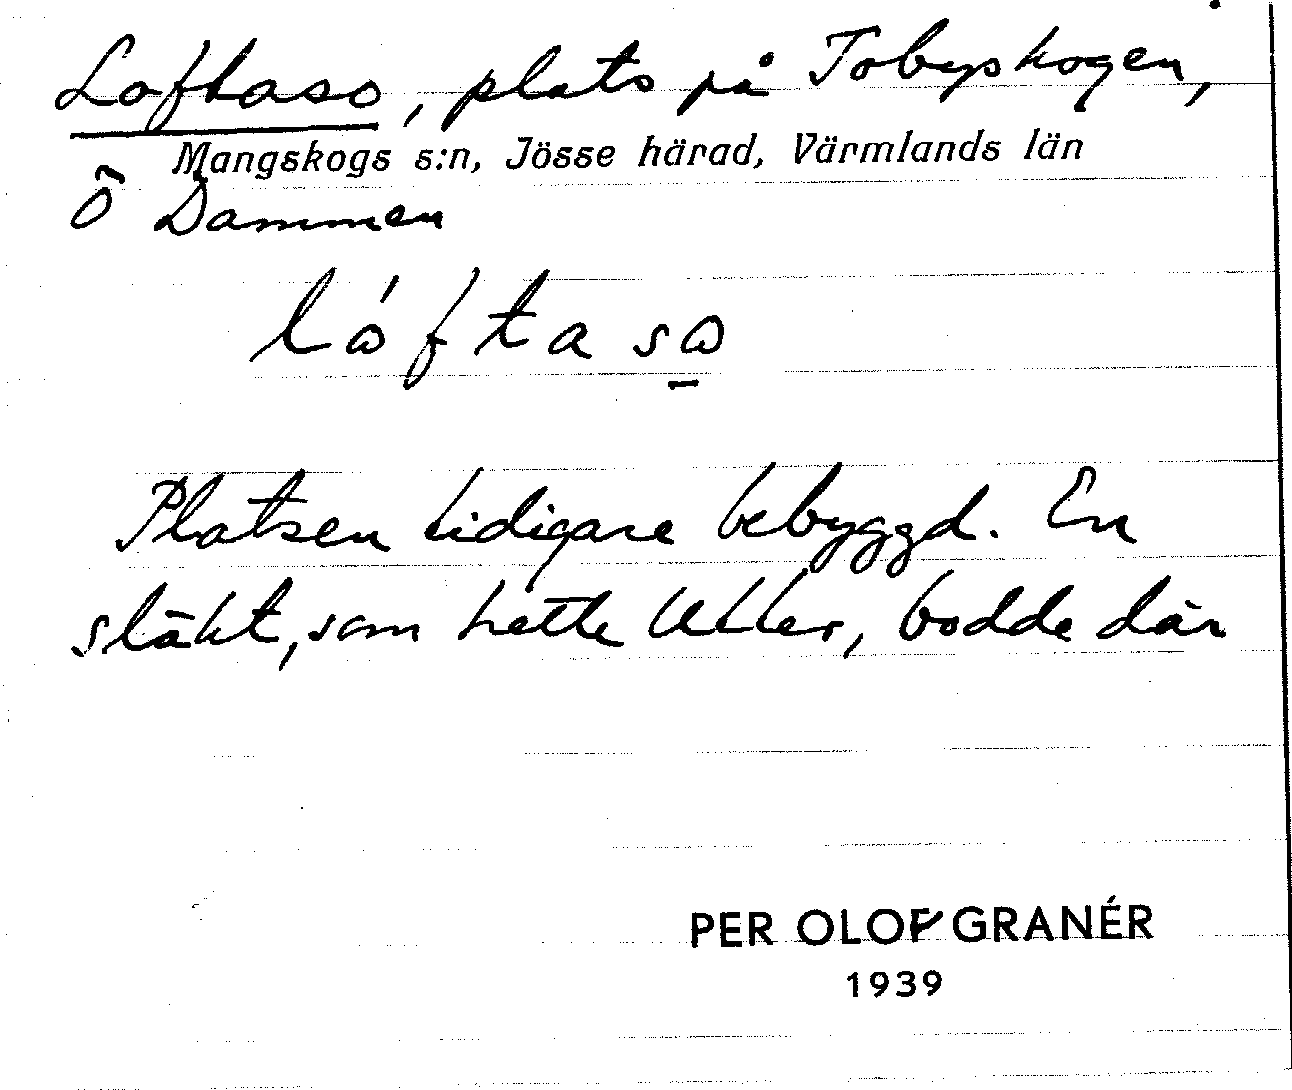 Loftaso, plats på Tobyskogen,
Mangskogs s:n, Jösse härad, Värmlands län
Ö Dammen
lóftaso
Platsen tidigare bebyggd. En
släkt, som hette Utter, bodde där
PER OLOF GRANÉR
1939